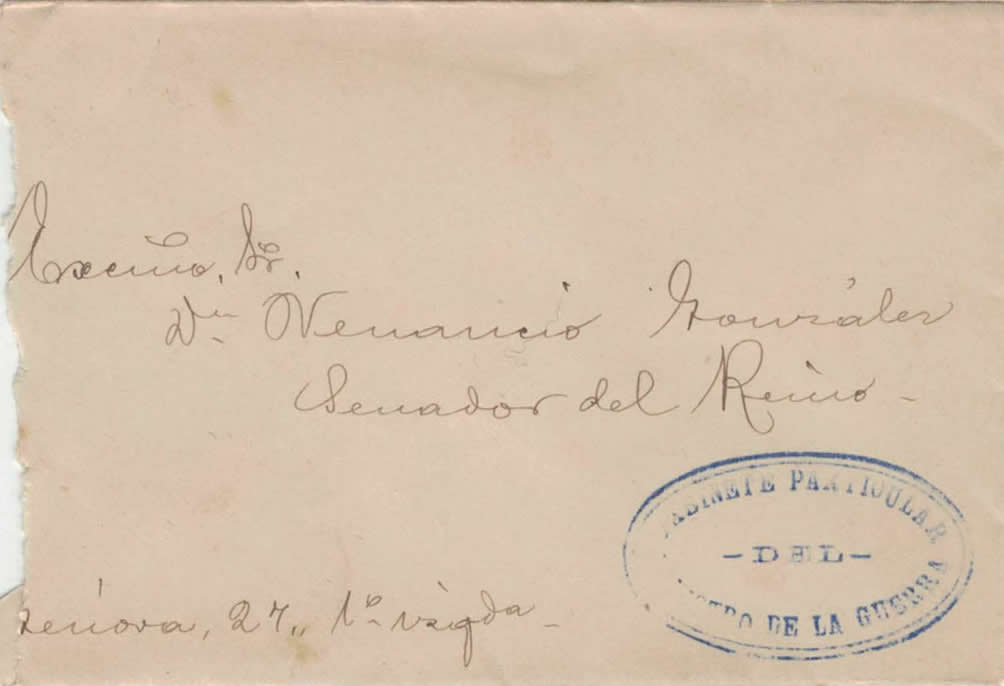 Excmo. Sr.
Dn. Venancio González
Senador del Reino -
GABINETE PARTICULAR
-DEL-
DE LA GUERRA
Génova, 27,, 1º izqda -